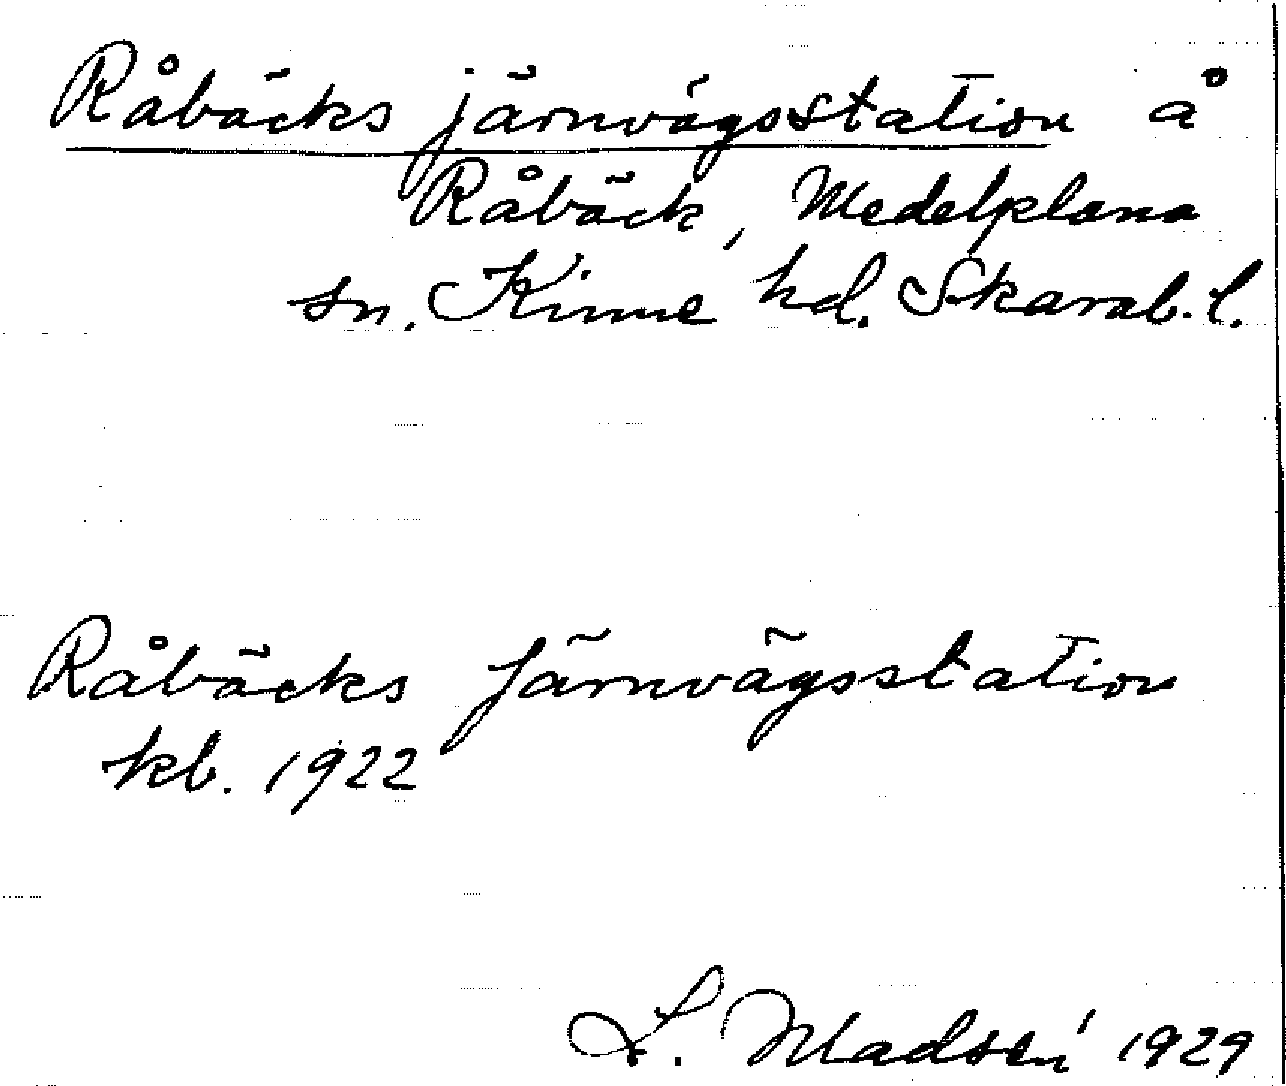 Råbäcks järnvägsstation å
Råbäck, Medelplana
sn. Kinne hd. Skarab. l.
Råbäcks Järnvägsstation
kb. 1922
L. Madsén 1929